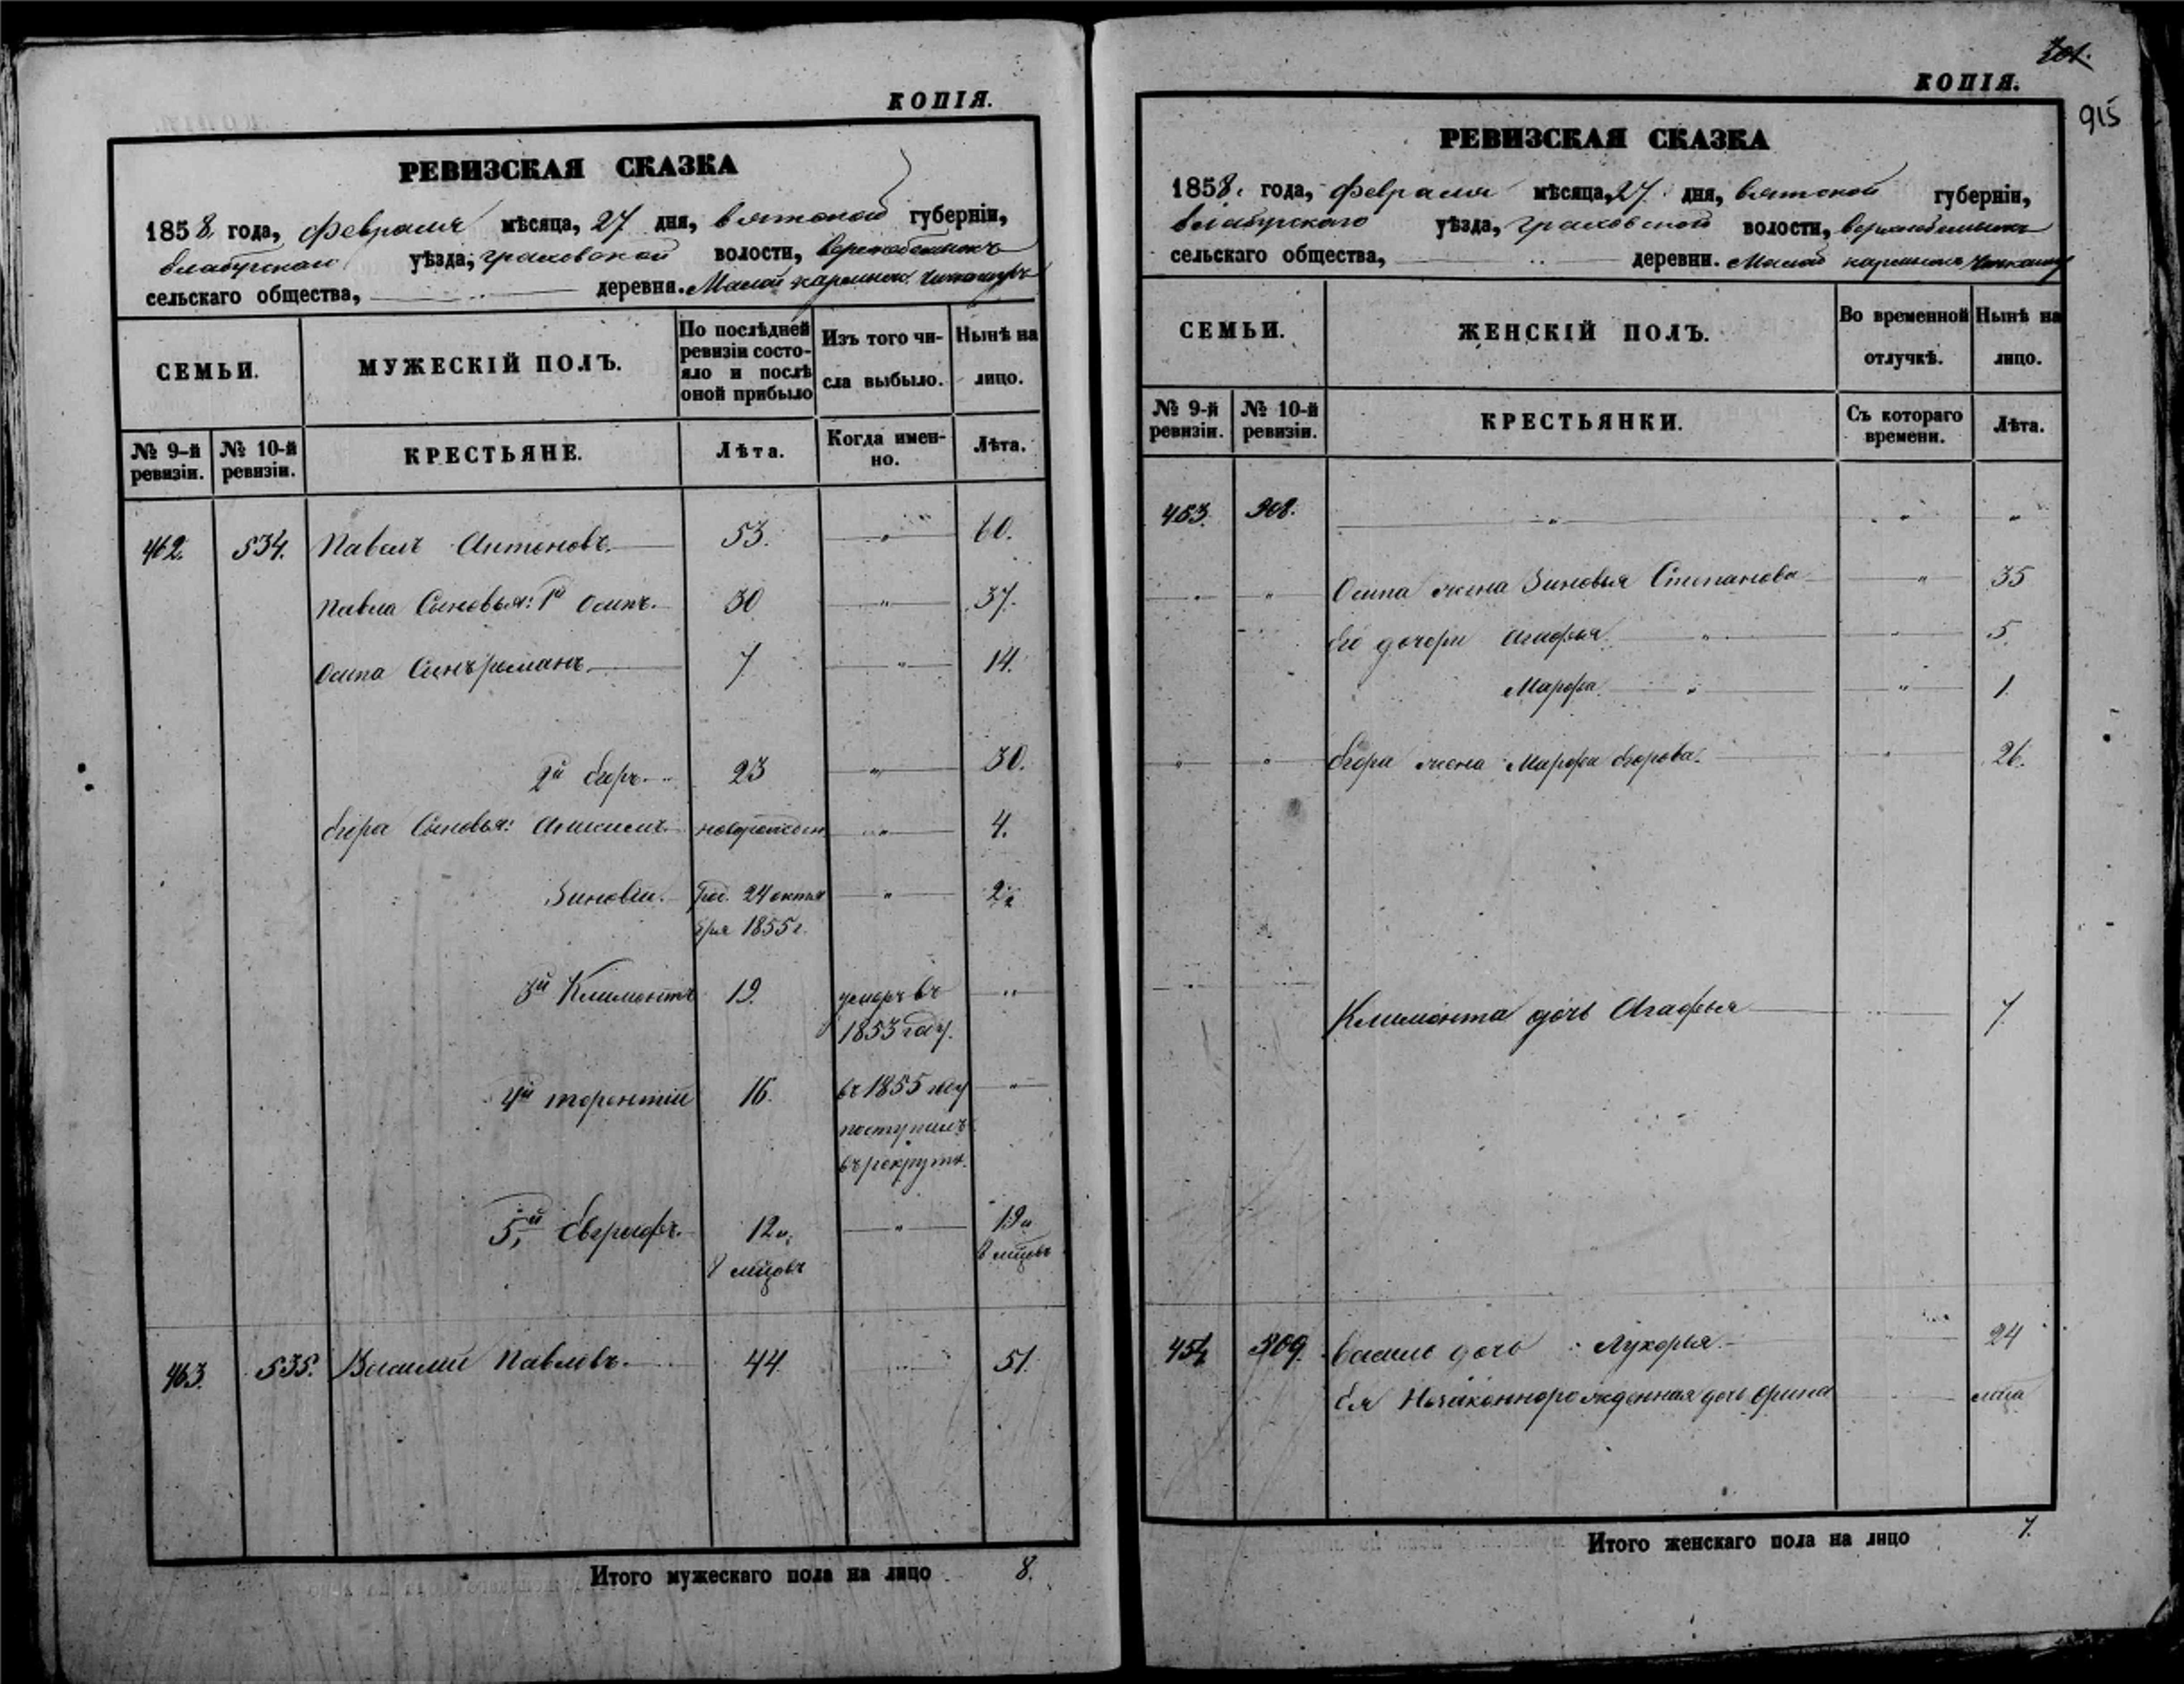 КОПІЯ.
РЕВИЗСКАЯ СКАЗКА
1858 года, февраля мѣсяца, 27 дня, вятской губерніи,
елабугскаго уѣзда, граховской волости,
сельскаго общества, деревня. Малой
СЕМЬИ.
МУЖЕСКІЙ ПОЛЪ.
По послѣдней ревизіи состо-
яло и послѣ
оной прибыло
Изъ того чи-
сла выбыло.
Нынѣ на
лицо.
№ 9-й ревизіи.
№ 10-й ревизіи.
КРЕСТЬЯНЕ.
Лѣта.
Когда имен-
но.
Лѣта.
462. 534. Павелъ Антоновъ. 53. " 60.
Павла Сыновья: 1й Осипъ. 30 " 37.
Осипа Сынъ романъ. 7 " 14.
2й егоръ. 23 " 30.
егора Сыновья: Анисимъ. новорожден " 4.
Зиновій. род. 24 октя " 2
бря 1855 г.
3й Климонтъ 19. умеръ въ "
1853 году.
4й терентій 16. въ 1855 году "
поступилъ
въ рекруты.
5й Евграфъ. 12 и " 19 и
8 мцовъ 8 мцовъ
463. 535. Василий Павловъ. 44. 51.
Итого мужескаго пола на лицо 8.
201.
КОПІЯ.
915
РЕВИЗСКАЯ СКАЗКА
1858. года, февраля мѣсяца, 27. дня, вятской губерніи,
елабугскаго уѣзда, граховской волости,
сельскаго общества, деревни. Малой
СЕМЬИ.
ЖЕНСКІЙ ПОЛЪ.
Во временной
отлучкѣ.
Нынѣ на
лицо.
№ 9-й ревизіи.
№ 10-й ревизіи.
КРЕСТЬЯНКИ.
Съ котораго
времени.
Лѣта.
453. 508. " " "
" " Осипа жена Зиновья Степанова " 35
его дочери Агафья " " 5
Марфа " " 1
" " егора жена Марфа егорова. " 26.
Климонта дочь Агафья 7
454 509. васил дочь Лукерья. 24
ея Незаконнорожденная дочь орина
Итого женскаго пола на лицо 7.